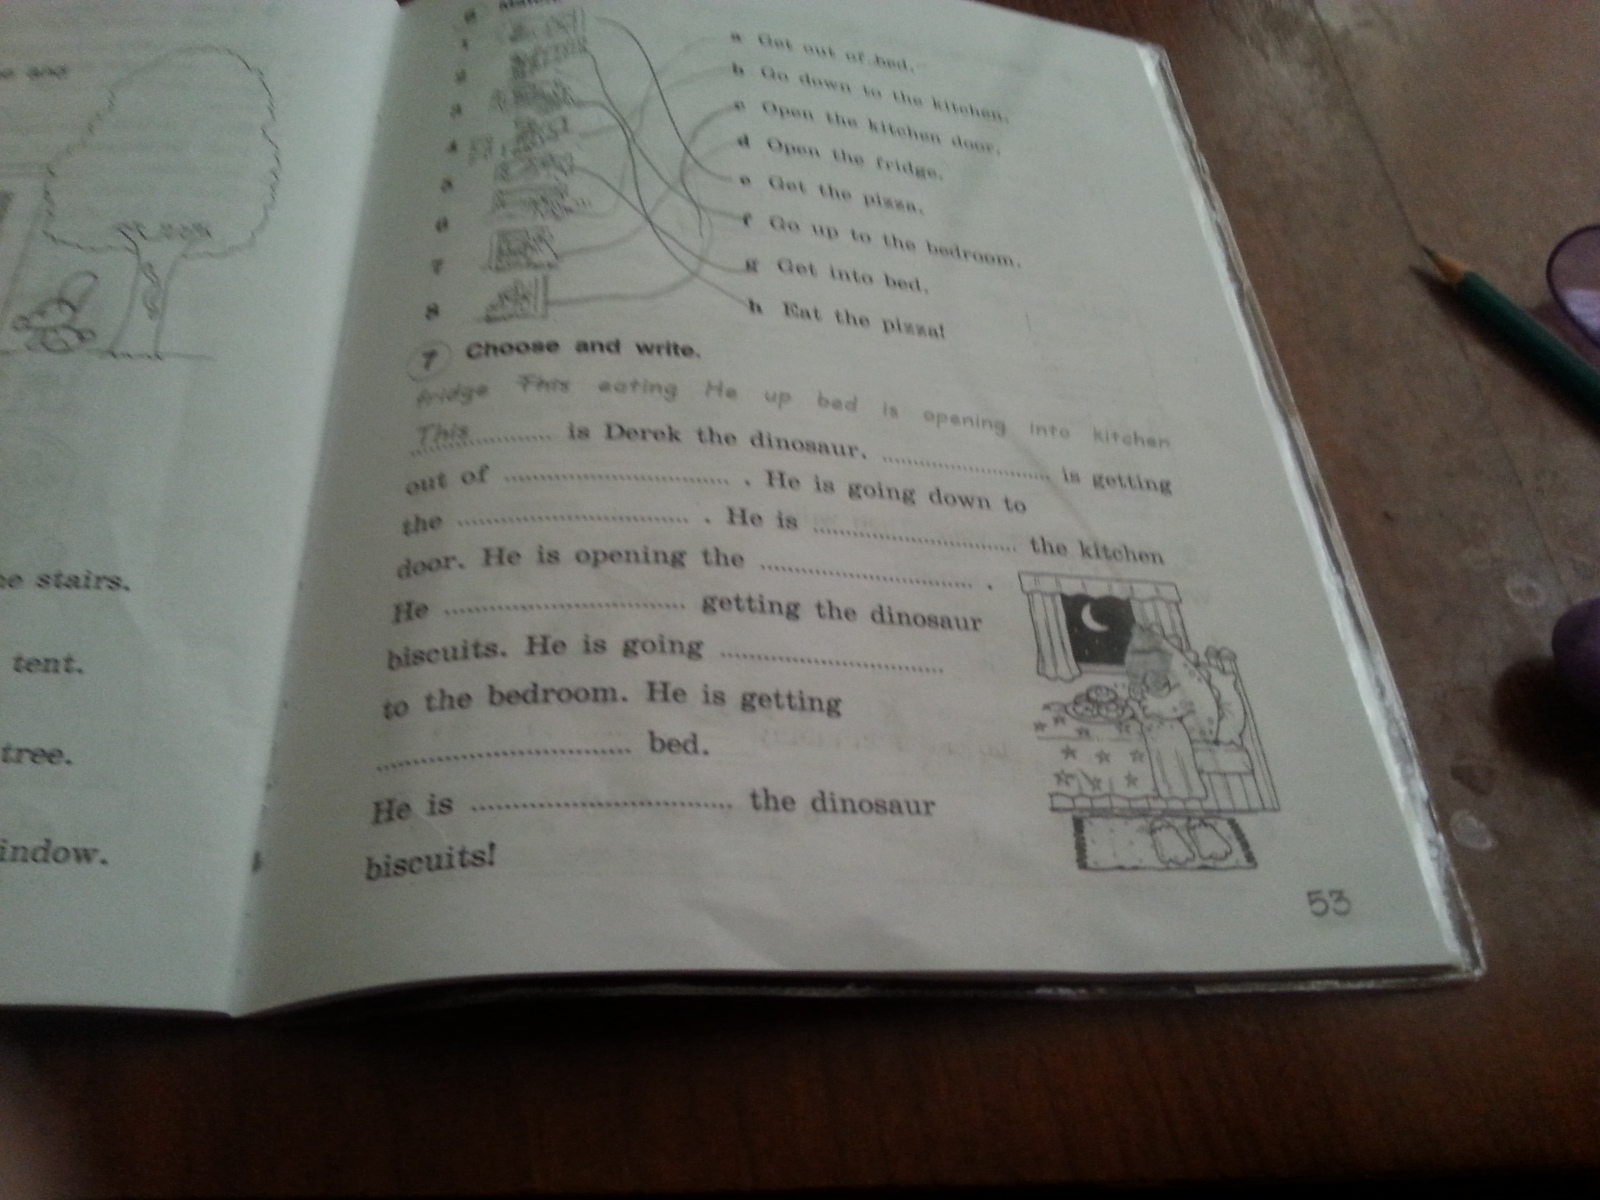 e and
e stairs.
tent.
tree.
indow.
6 Match.
1
2
3
4
5
6
7
8
a Get out of bed.
b Go down to the kitchen.
c Open the kitchen door.
d Open the fridge.
e Get the pizza.
f Go up to the bedroom.
g Get into bed.
h Eat the pizza!
7 Choose and write.
fridge This eating He up bed is opening into kitchen
This is Derek the dinosaur. .......... is getting
out of .......... . He is going down to
the .......... . He is .......... the kitchen
door. He is opening the .......... .
He .......... getting the dinosaur
biscuits. He is going ..........
to the bedroom. He is getting
.......... bed.
He is .......... the dinosaur
biscuits!
53